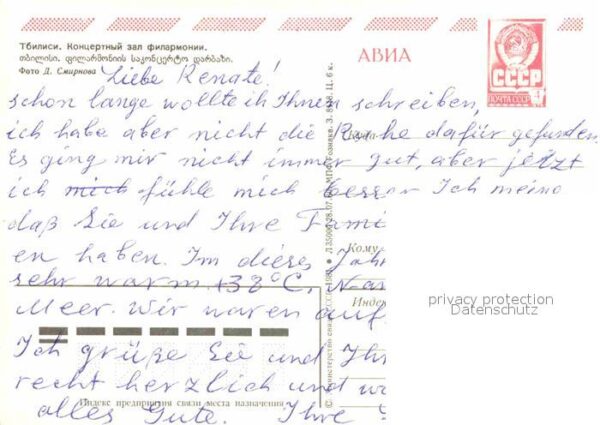 Тбилиси. Концертный зал филармонии.
თბილისი. ფილარმონიის საკონცერტო დარბაზი.
Фото Д. Смирнова
АВИА
СССР
ПОЧТА СССР
Liebe Renate!
schon lange wollte ich Ihnen schreiben,
ich habe aber nicht die Ruhe dafür gefunden.
Es ging mir nicht immer gut, aber jetzt
ich mich fühle mich besser Ich meine
daß Sie und Ihre Fami
en haben. Im dieses Jahr
sehr warm +38°C,
Meer. Wir waren auf
Ich grüße Sie und Ihr
recht herzlich und
alles Gute. Ihre
Куда
Кому
Индекс предприятия связи места назначения
© Министерство связи СССР
privacy protection
Datenschutz